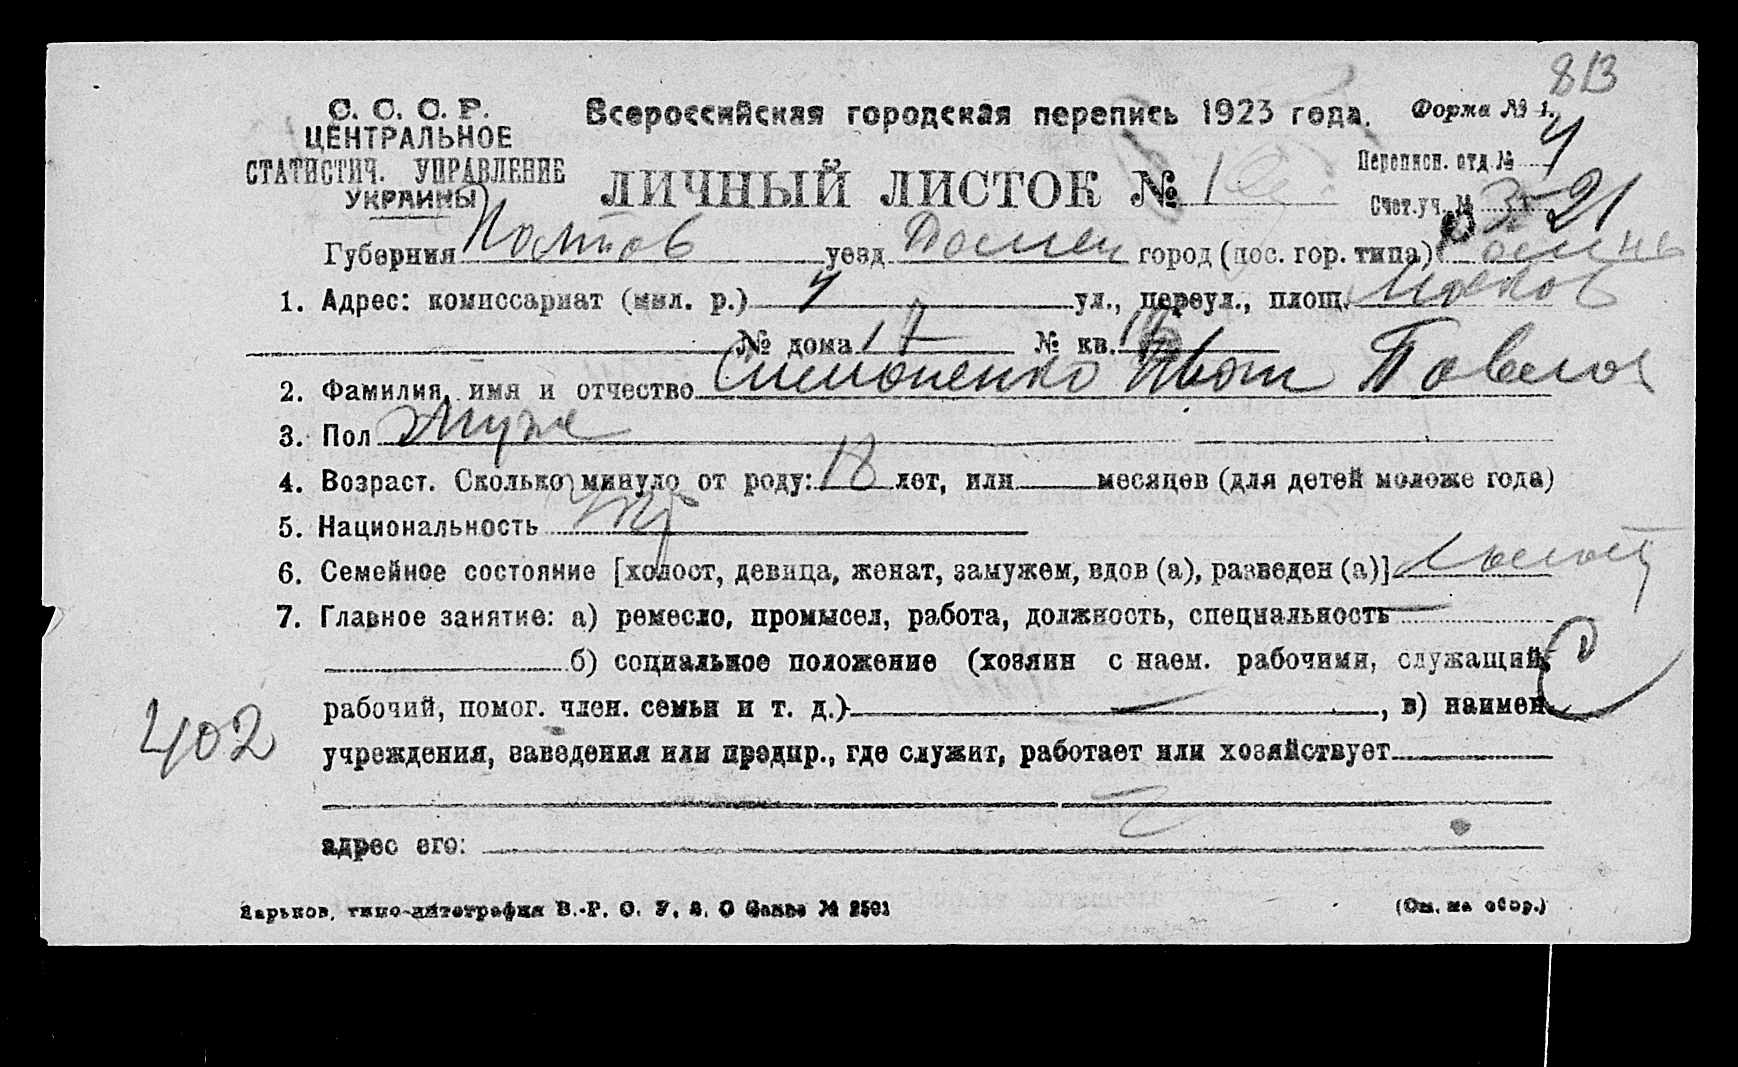 813
С. С. С. Р. Всероссийская городская перепись 1923 года. Форма № 1.
ЦЕНТРАЛЬНОЕ
СТАТИСТИЧ. УПРАВЛЕНИЕ
УКРАИНЫ
ЛИЧНЫЙ ЛИСТОК № 1
Переписн. отд. № 4
Счет. уч. № 21
Губерния Полтов уезд Ромен город (пос. гор. типа)
1. Адрес: комиссариат (мил. р.) 4 ул., переул., площ.
№ дома 17 № кв.
2. Фамилия, имя и отчество Симоненко Иван Павлов
3. Пол муж
4. Возраст. Сколько минуло от роду: 18 лет, или месяцев (для детей моложе года)
5. Национальность укр
6. Семейное состояние [холост, девица, женат, замужем, вдов (а), разведен (а)] холост
7. Главное занятие: а) ремесло, промысел, работа, должность, специальность —
б) социальное положение (хозяин с наем. рабочими, служащий,
рабочий, помог. член. семьи и т. д.) — , в) наимен.
402
учреждения, заведения или предпр., где служит, работает или хозяйствует
адрес его:
Харьков, типо-литография В.-Р. О. У. З. О Заказ № 2501 (См. на обор.)